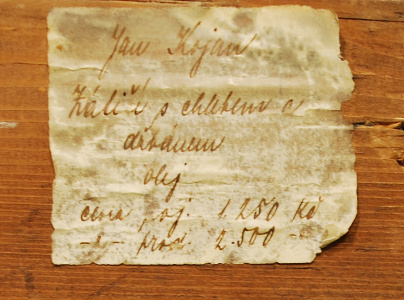 Jan Kojan
Zátiší s chlebem a
džbánem
olej
cena poj. 1.250 Kč
-"- prod. 2.500 -"-